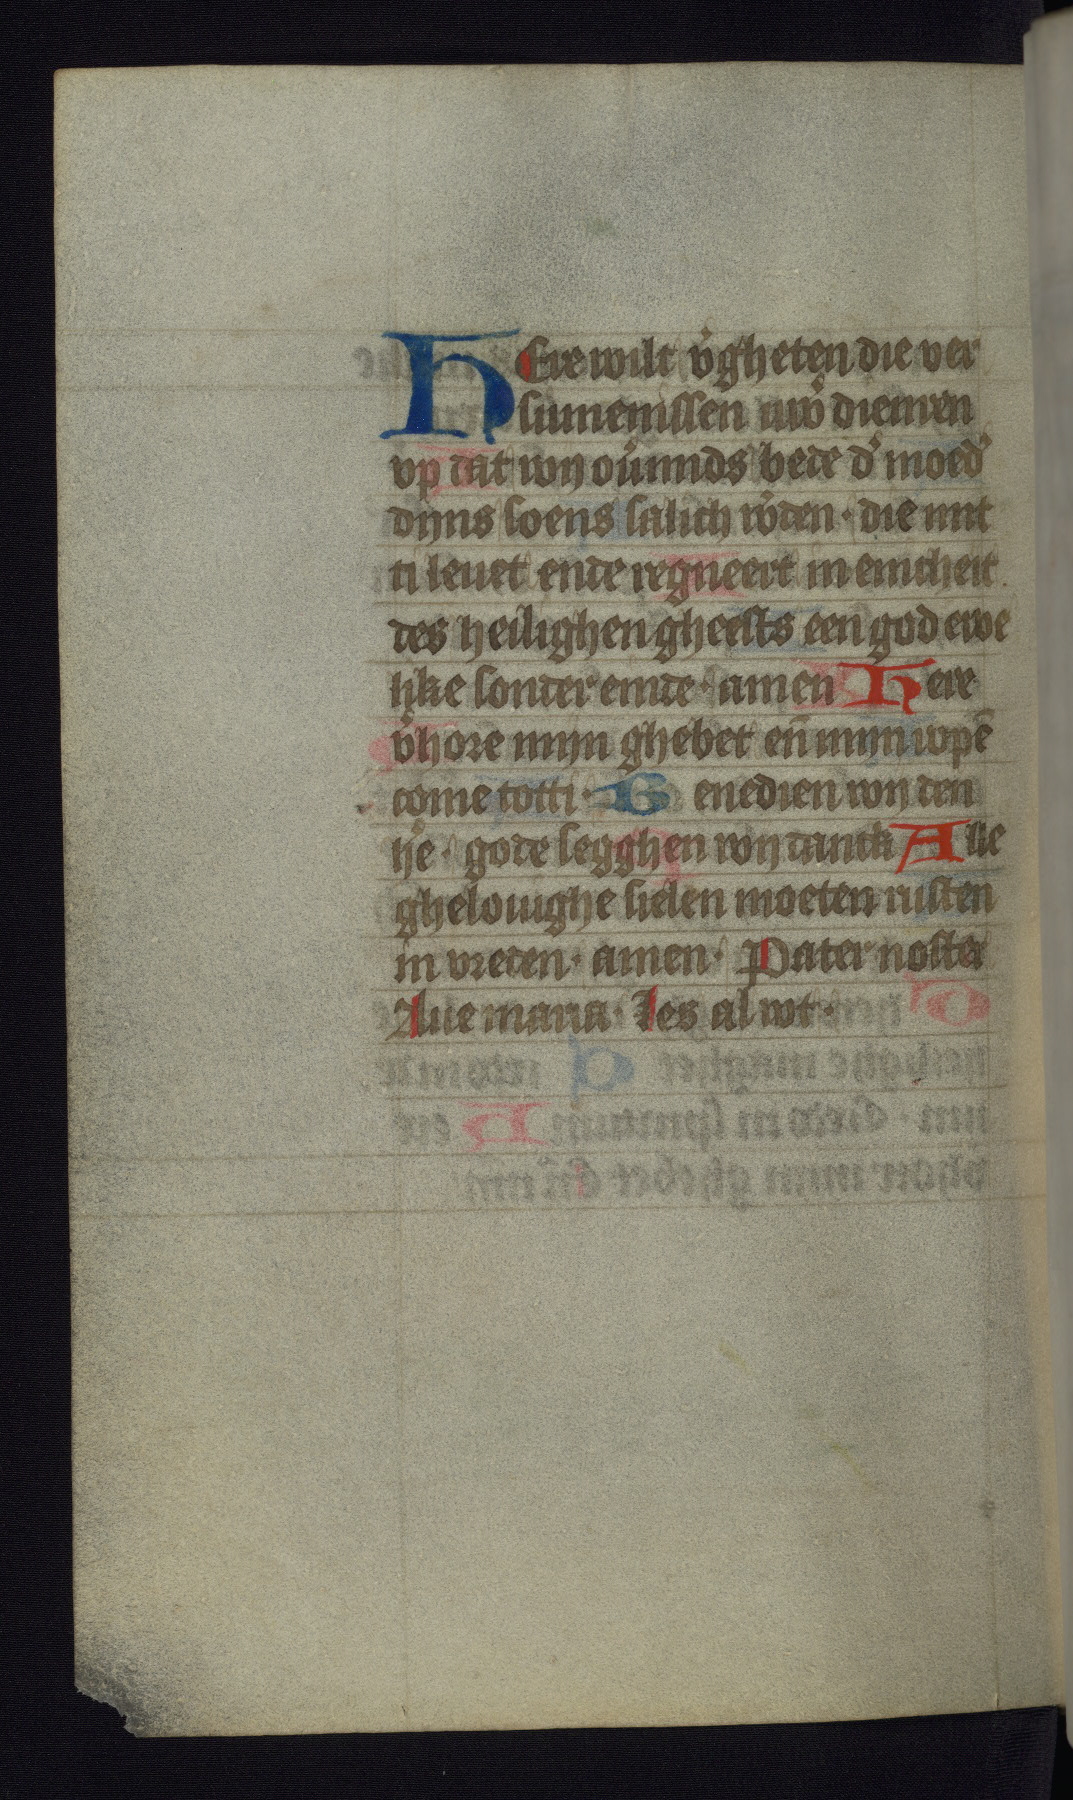 HEere wilt v̕gheten die ver
sumenissen uw̕ dienren
vp dat wy ou̕mids bede d̕ moed̕
dyns soens salich w̕den · die mit
ti leuet ende regneert in enicheit
des heilighen gheests een god ewe
like sonder einde · amen Here
v̕hore myn ghebet en̄ myn rope̅
come totti · Benedien wy den
he̕ · gode segghen wy danck Alle
ghelouighe sielen moeten rusten
in vreden · amen · Pater noster
Aue maria · Les al wt ·